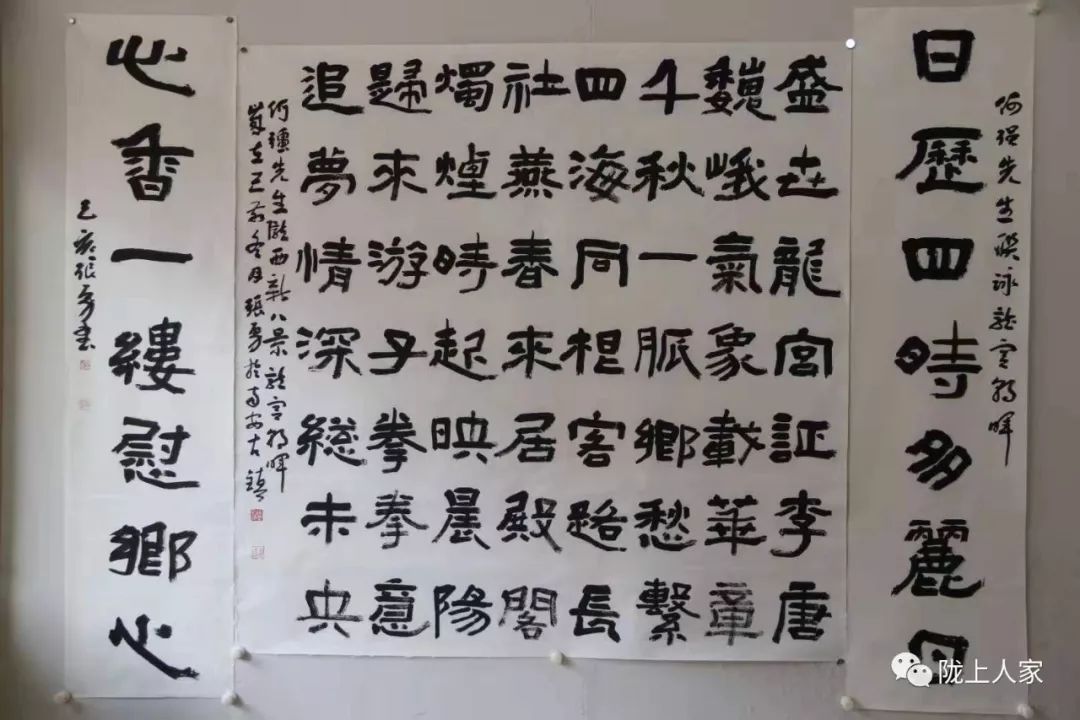 何强先生聯詠龍宮朝暉
日歷四時多麗日
盛世龍宮証李唐
巍峨氣象載華章
千秋一脈鄉愁繫
四海同根客路長
社燕春來居殿閣
燭煙時起映晨陽
歸來游子拳拳意
追夢情深總未央
何彊先生隴西新八景龍宮朝暉
歲在己亥冬月張勇於南安古鎮
心香一縷慰鄉心
己亥張勇書
陇上人家